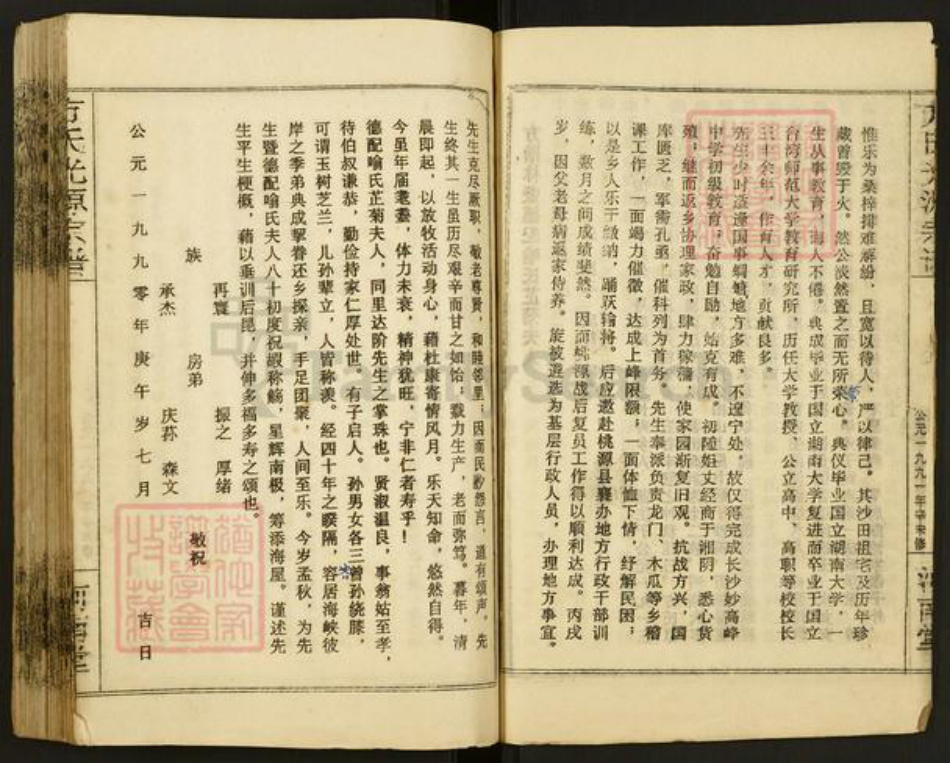 惟乐为桑梓排难解纷，且宽以待人，严以律己。其沙田祖宅及历年珍
藏曾毁于火。然公淡然置之而无所萦心。典仪毕业国立湖南大学，一
生从事教育，诲人不倦。典成毕业于国立湖南大学复进而卒业于国立
台湾师范大学教育研究所，历任大学教授、公立高中、高职等校校长
三十余年，作育人才，贡献良多。
先生少时适逢国事蜩螗地方多难，不遑宁处，故仅得完成长沙妙高峰
中学初级教育，奋勉自励，始克有成。初随姐丈经商于湘阴，悉心货
殖；继而返乡协理家政，肆力稼穑，使家园渐复旧观。抗战方兴，国
库匮乏，军需孔亟，催科列为首务。先生奉派负责龙门、木瓜等乡稽
课工作，一面竭力催徵，达成上峰限额；一面体恤下情，纾解民困；
以是乡人乐于缴纳，踊跃输将。后应邀赴桃源县襄办地方行政干部训
练，数月之间成绩斐然。因而战后复员工作得以顺利达成。丙戌
岁，因父老母病返家侍养。旋被遴选为基层行政人员，办理地方事宜。
公元一九九一年辛未修
先生克尽厥职，敬老尊贤，和睦邻里；因而民 怨言，道有颂声。先
生终其一生虽历尽艰辛而甘之如饴；戮力生产，老而弥笃。暮年，清
晨即起，以放牧活动身心，藉杜康寄情风月。乐天知命，悠然自得。
今虽年届耄耋，体力未衰，精神犹旺，宁非仁者寿乎！
德配喻氏芷菊夫人，同里达阶先生之掌珠也。贤淑温良，事翁姑至孝，
待伯叔谦恭，勤俭持家仁厚处世。有子启人。孙男女各三曾孙绕膝，
可谓玉树芝兰，儿孙辈立，人皆称羡。经四十年之睽隔，容居海峡彼
岸之季弟典成挈眷还乡探亲，手足团聚，人间至乐。今岁孟秋，为先
生暨德配喻氏夫人八十初度祝嘏称觞，星辉南极，筹添海屋。谨述先
生平生梗概，藉以垂训后昆，并伸多福多寿之颂也。
再寰 振之 厚绪 敬祝
族 房弟
承杰 庆荪 森文
公元一九九零年庚午岁七月 吉日
方氏光源宗谱
河南堂